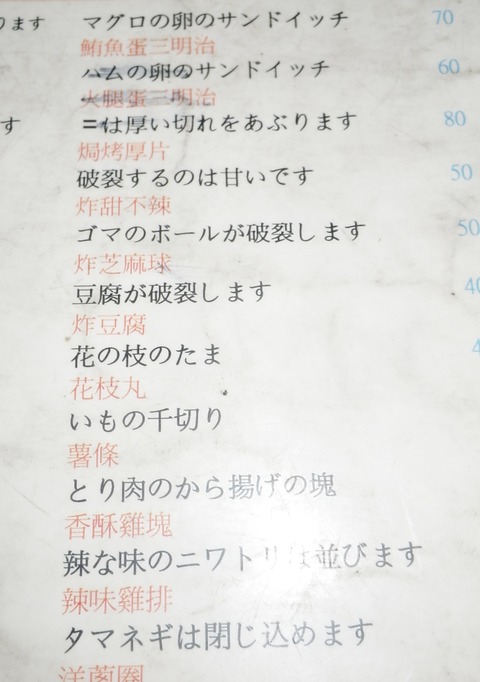 ります マグロの卵のサンドイッチ 70
鮪魚蛋三明治
ハムの卵のサンドイッチ 60
火腿蛋三明治
す =は厚い切れをあぶります 80
焗烤厚片
破裂するのは甘いです 50
炸甜不辣
ゴマのボールが破裂します 50
炸芝麻球
豆腐が破裂します 40
炸豆腐
花の枝のたま 4
花枝丸
いもの千切り
薯條
とり肉のから揚げの塊
香酥雞塊
辣な味のニワトリは並びます
辣味雞排
タマネギは閉じ込めます
洋蔥圈